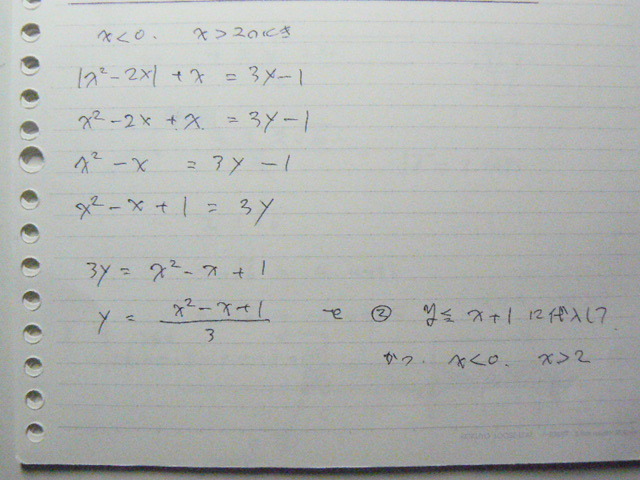 x<0. x>2のとき
|x²-2x|+x = 3y-1
x²-2x+x = 3y-1
x²-x = 3y-1
x²-x+1 = 3y
3y = x²-x+1
y = \frac{x²-x+1}{3} を ② y≦x+1 に代入して
かつ. x<0. x>2